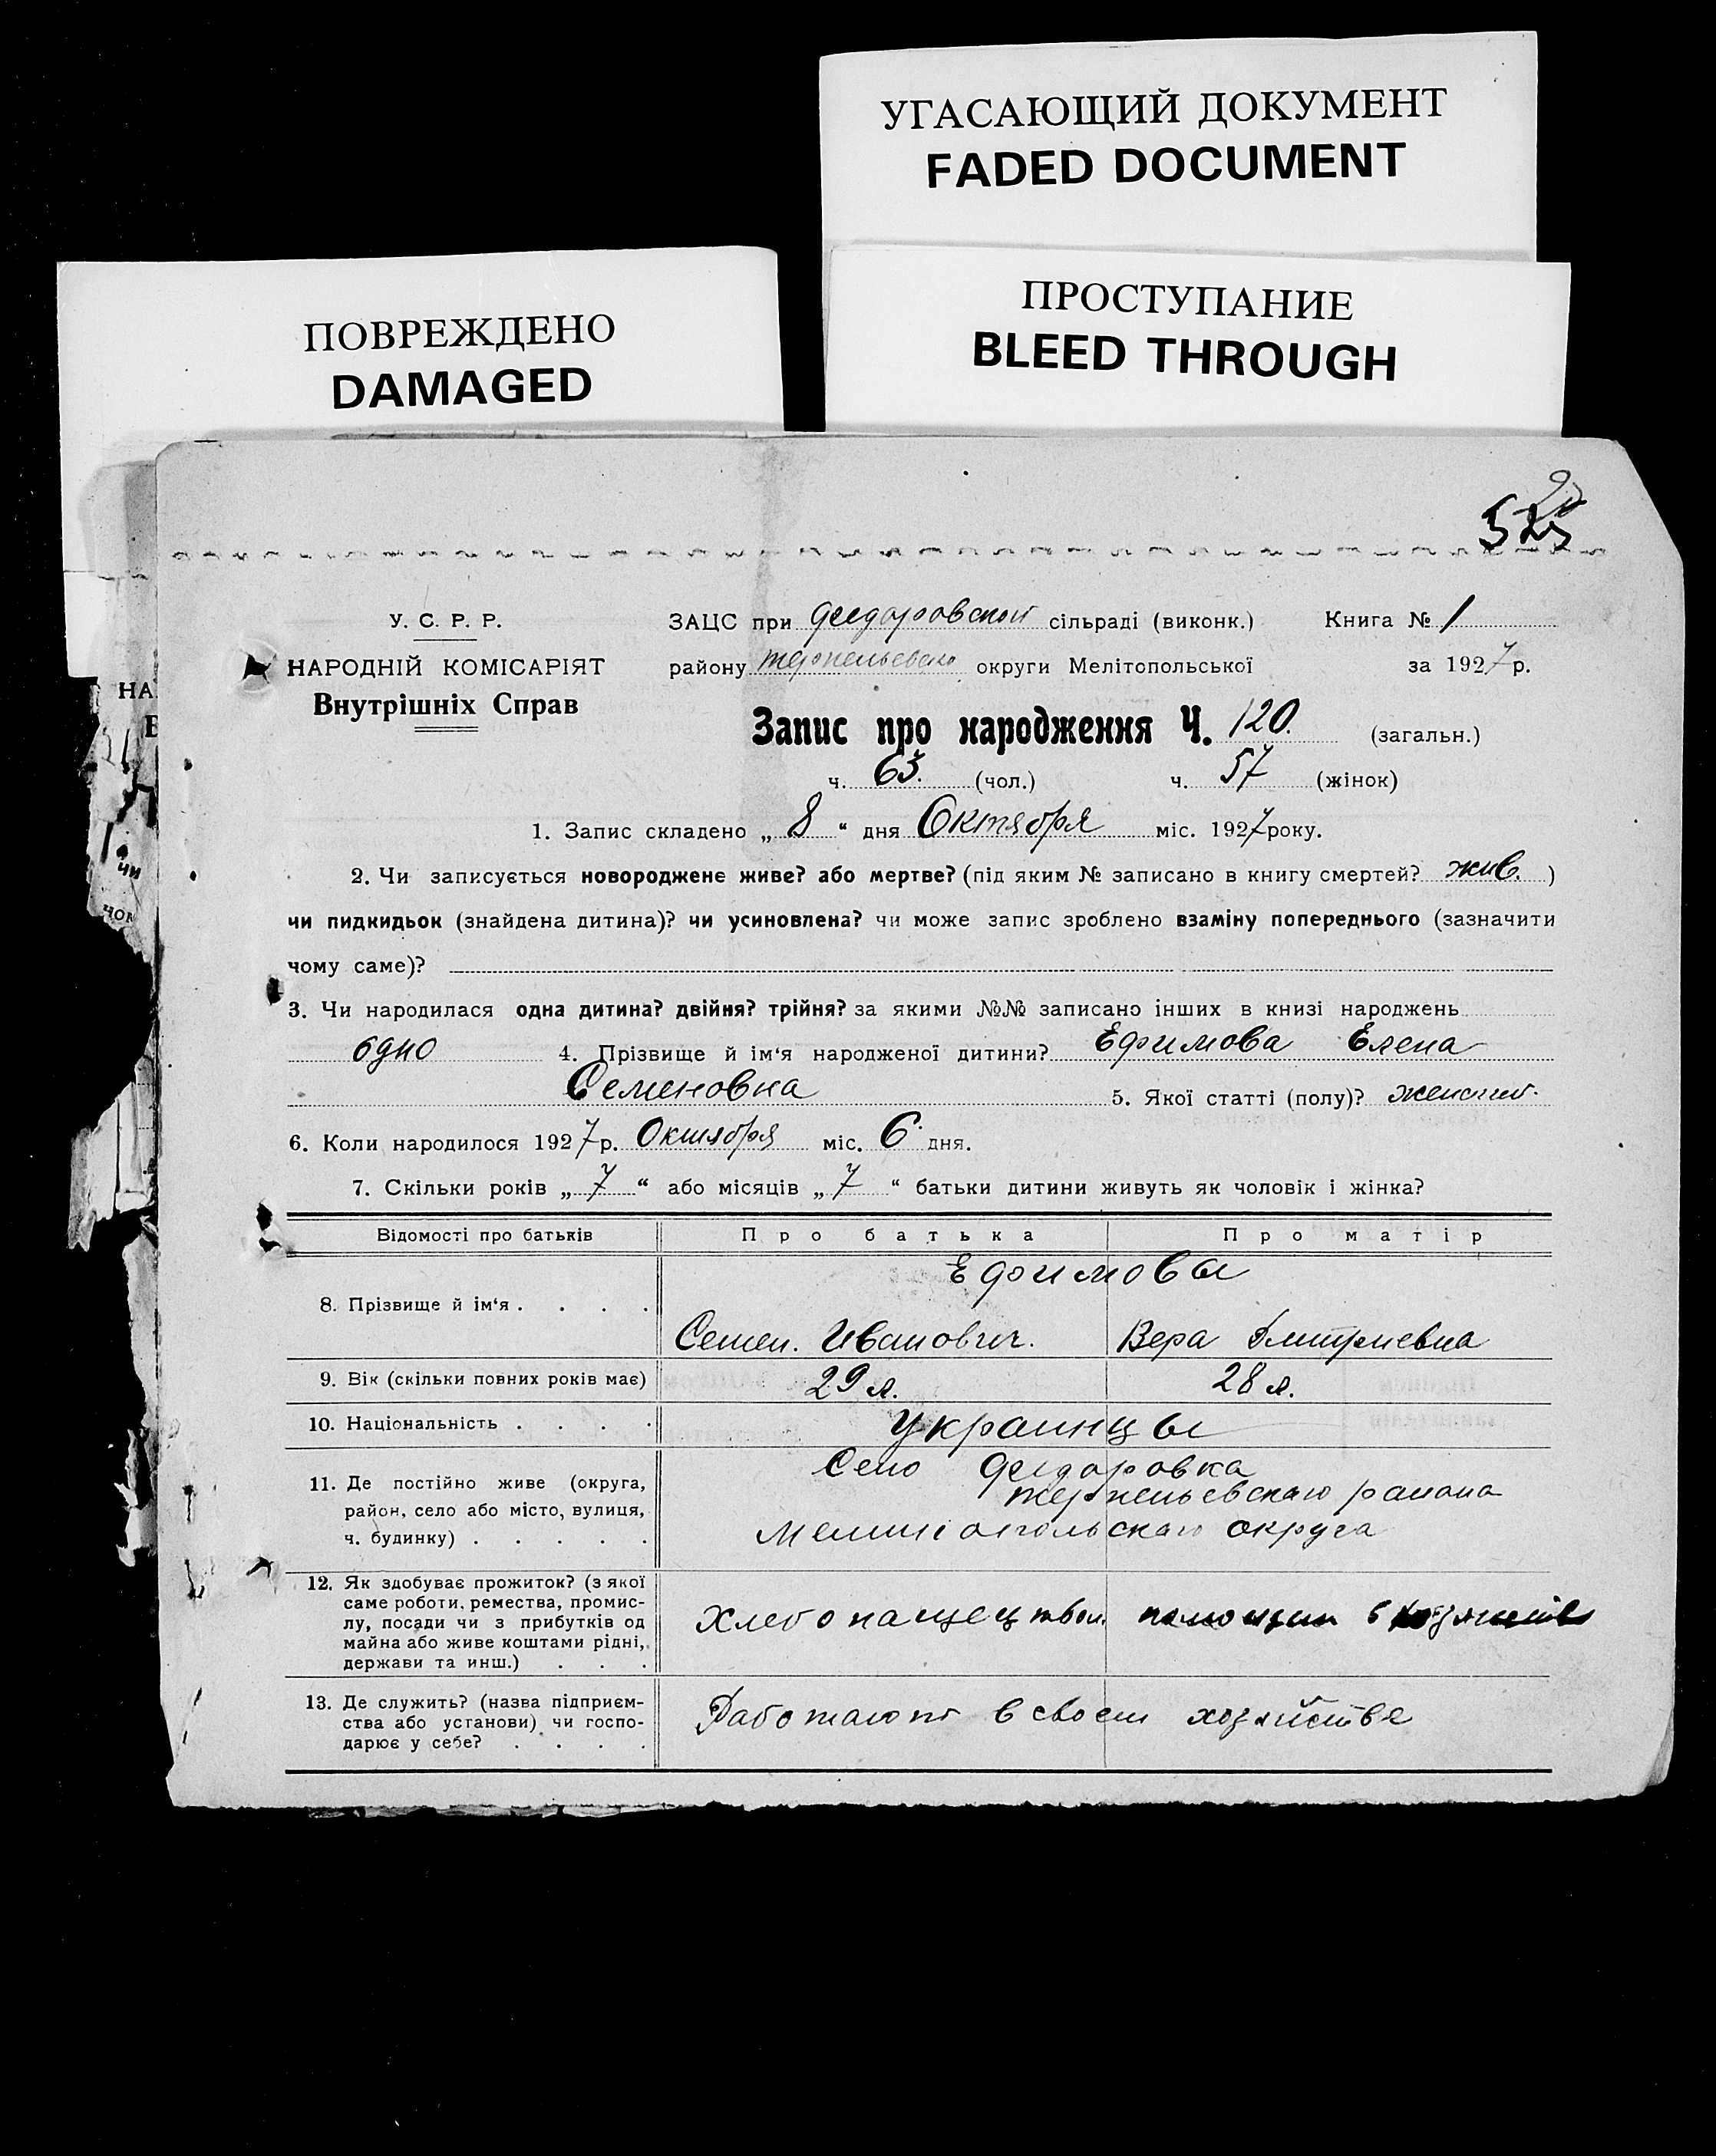 УГАСАЮЩИЙ ДОКУМЕНТ
FADED DOCUMENT
ПОВРЕЖДЕНО
DAMAGED
ПРОСТУПАНИЕ
BLEED THROUGH
525
У. С. Р. Р.
НАРОДНІЙ КОМІСАРІЯТ
Внутрішніх Справ
ЗАЦС при Федоровской сільраді (виконк.) Книга № 1
району Терпеньевско округи Мелітопольської за 1927 р.
Запис про народження Ч. 120. (загальн.)
ч. 63. (чол.) ч. 57 (жінок)
1. Запис складено „ 8 “ дня Октября міс. 1927 року.
2. Чи записується новороджене живе? або мертве? (під яким № записано в книгу смертей? жив. )
чи пидкидьок (знайдена дитина)? чи усиновлена? чи може запис зроблено взаміну попереднього (зазначити
чому саме)?
3. Чи народилася одна дитина? двійня? трійня? за якими №№ записано інших в книзі народжень
одно 4. Прізвище й ім‘я народженої дитини? Ефимова Елена
Семеновна 5. Якої статті (полу)? женский.
6. Коли народилося 1927 р. Октября міс. 6 дня.
7. Скільки років „ 7 “ або місяців „ 7 “ батьки дитини живуть як чоловік і жінка?
Відомості про батьків Про батька Про матір
Ефимовы
8. Прізвище й ім‘я . . . .
Семен. Иванович. Вера Дмитриевна
9. Вік (скільки повних років має) 29 л. 28 л.
10. Національність . . . . Украинцы
11. Де постійно живе (округа,
район, село або місто, вулиця,
ч. будинку) . . . . .
Село Федоровка
Терпеньевскаго района
Мелитопольскаго округа
12. Як здобуває прожиток? (з якої
саме роботи, ремества, промис-
лу, посади чи з прибутків од
майна або живе коштами рідні,
держави та инш.) . . .
Хлебопаществом помощни в хозяистве
13. Де служить? (назва підприєм-
ства або установи) чи госпо-
дарює у себе? . . . .
Работают в своем хозяйстве
НА
В
чи
чом